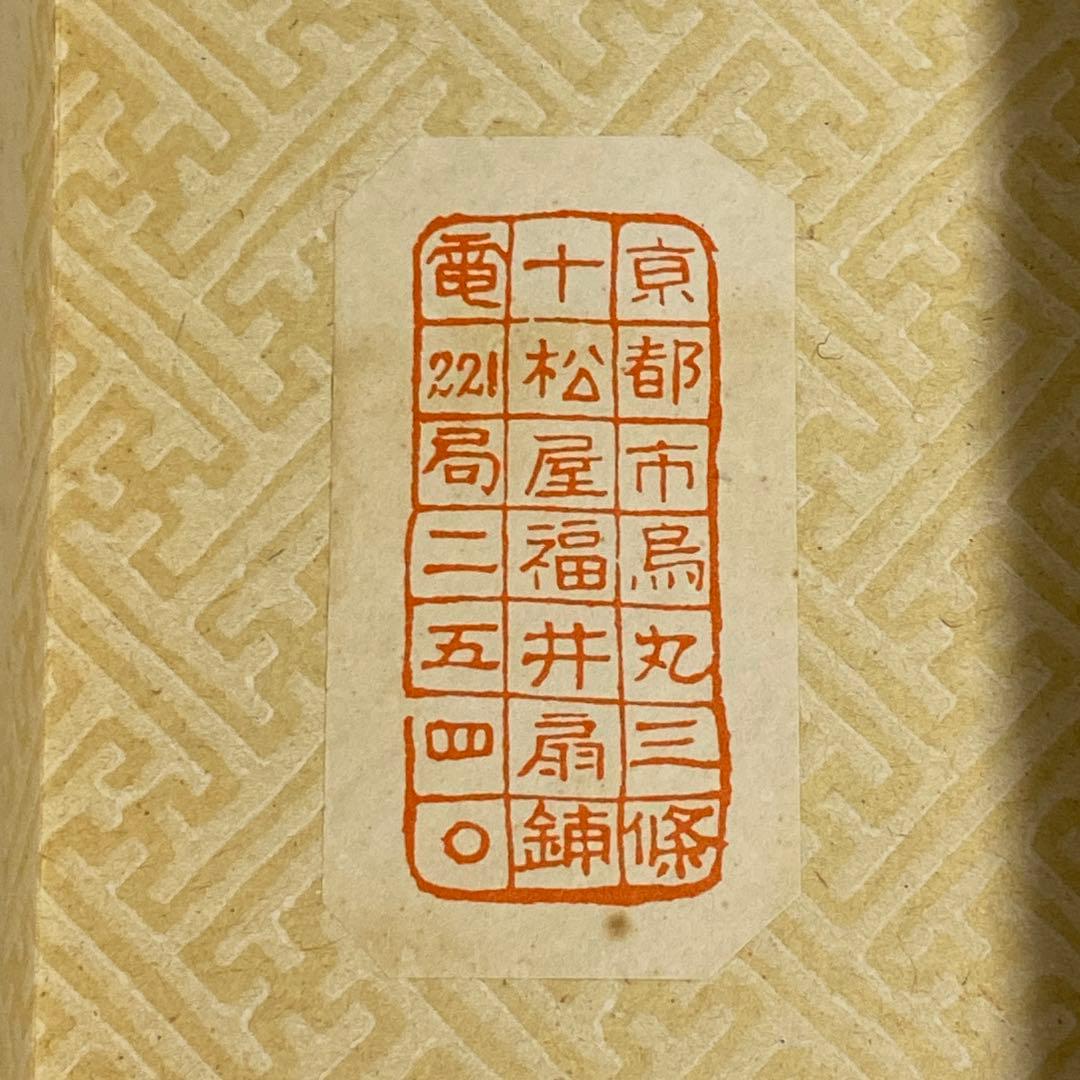 京都市烏丸三條
十松屋福井扇鋪
電221局二五四〇